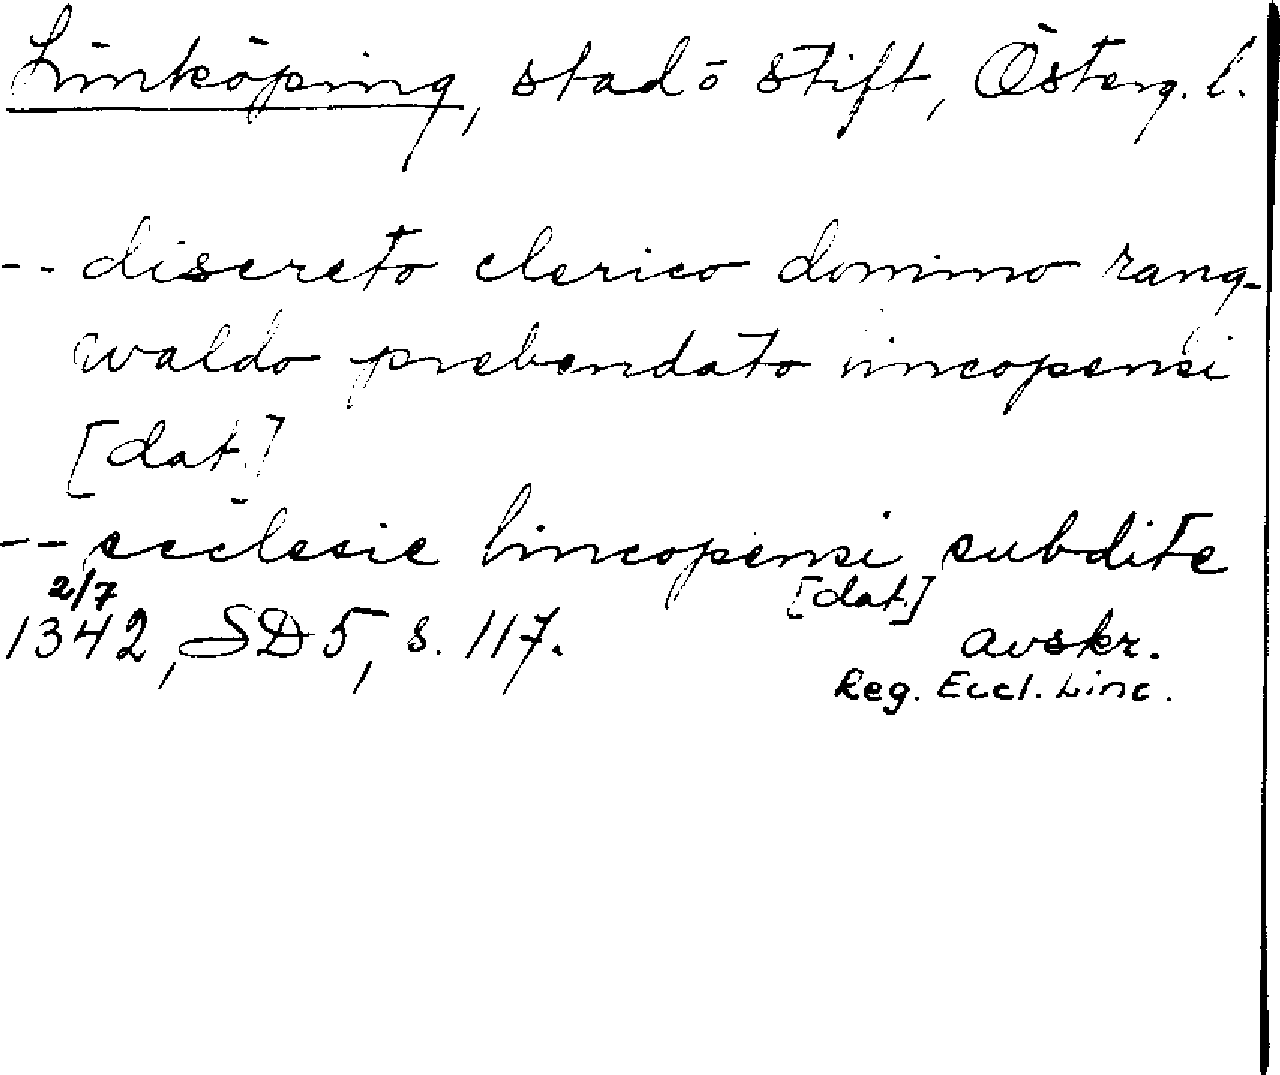 Linköping, stad o stift, Österg. l.
-- discreto clerico domino rang-
waldo prebendato lincopensi
[dat.]
-- ecclesie lincopensi subdite
[dat.]
2/7
1342, SD 5, s. 117. avskr.
Reg. Eccl. Linc.